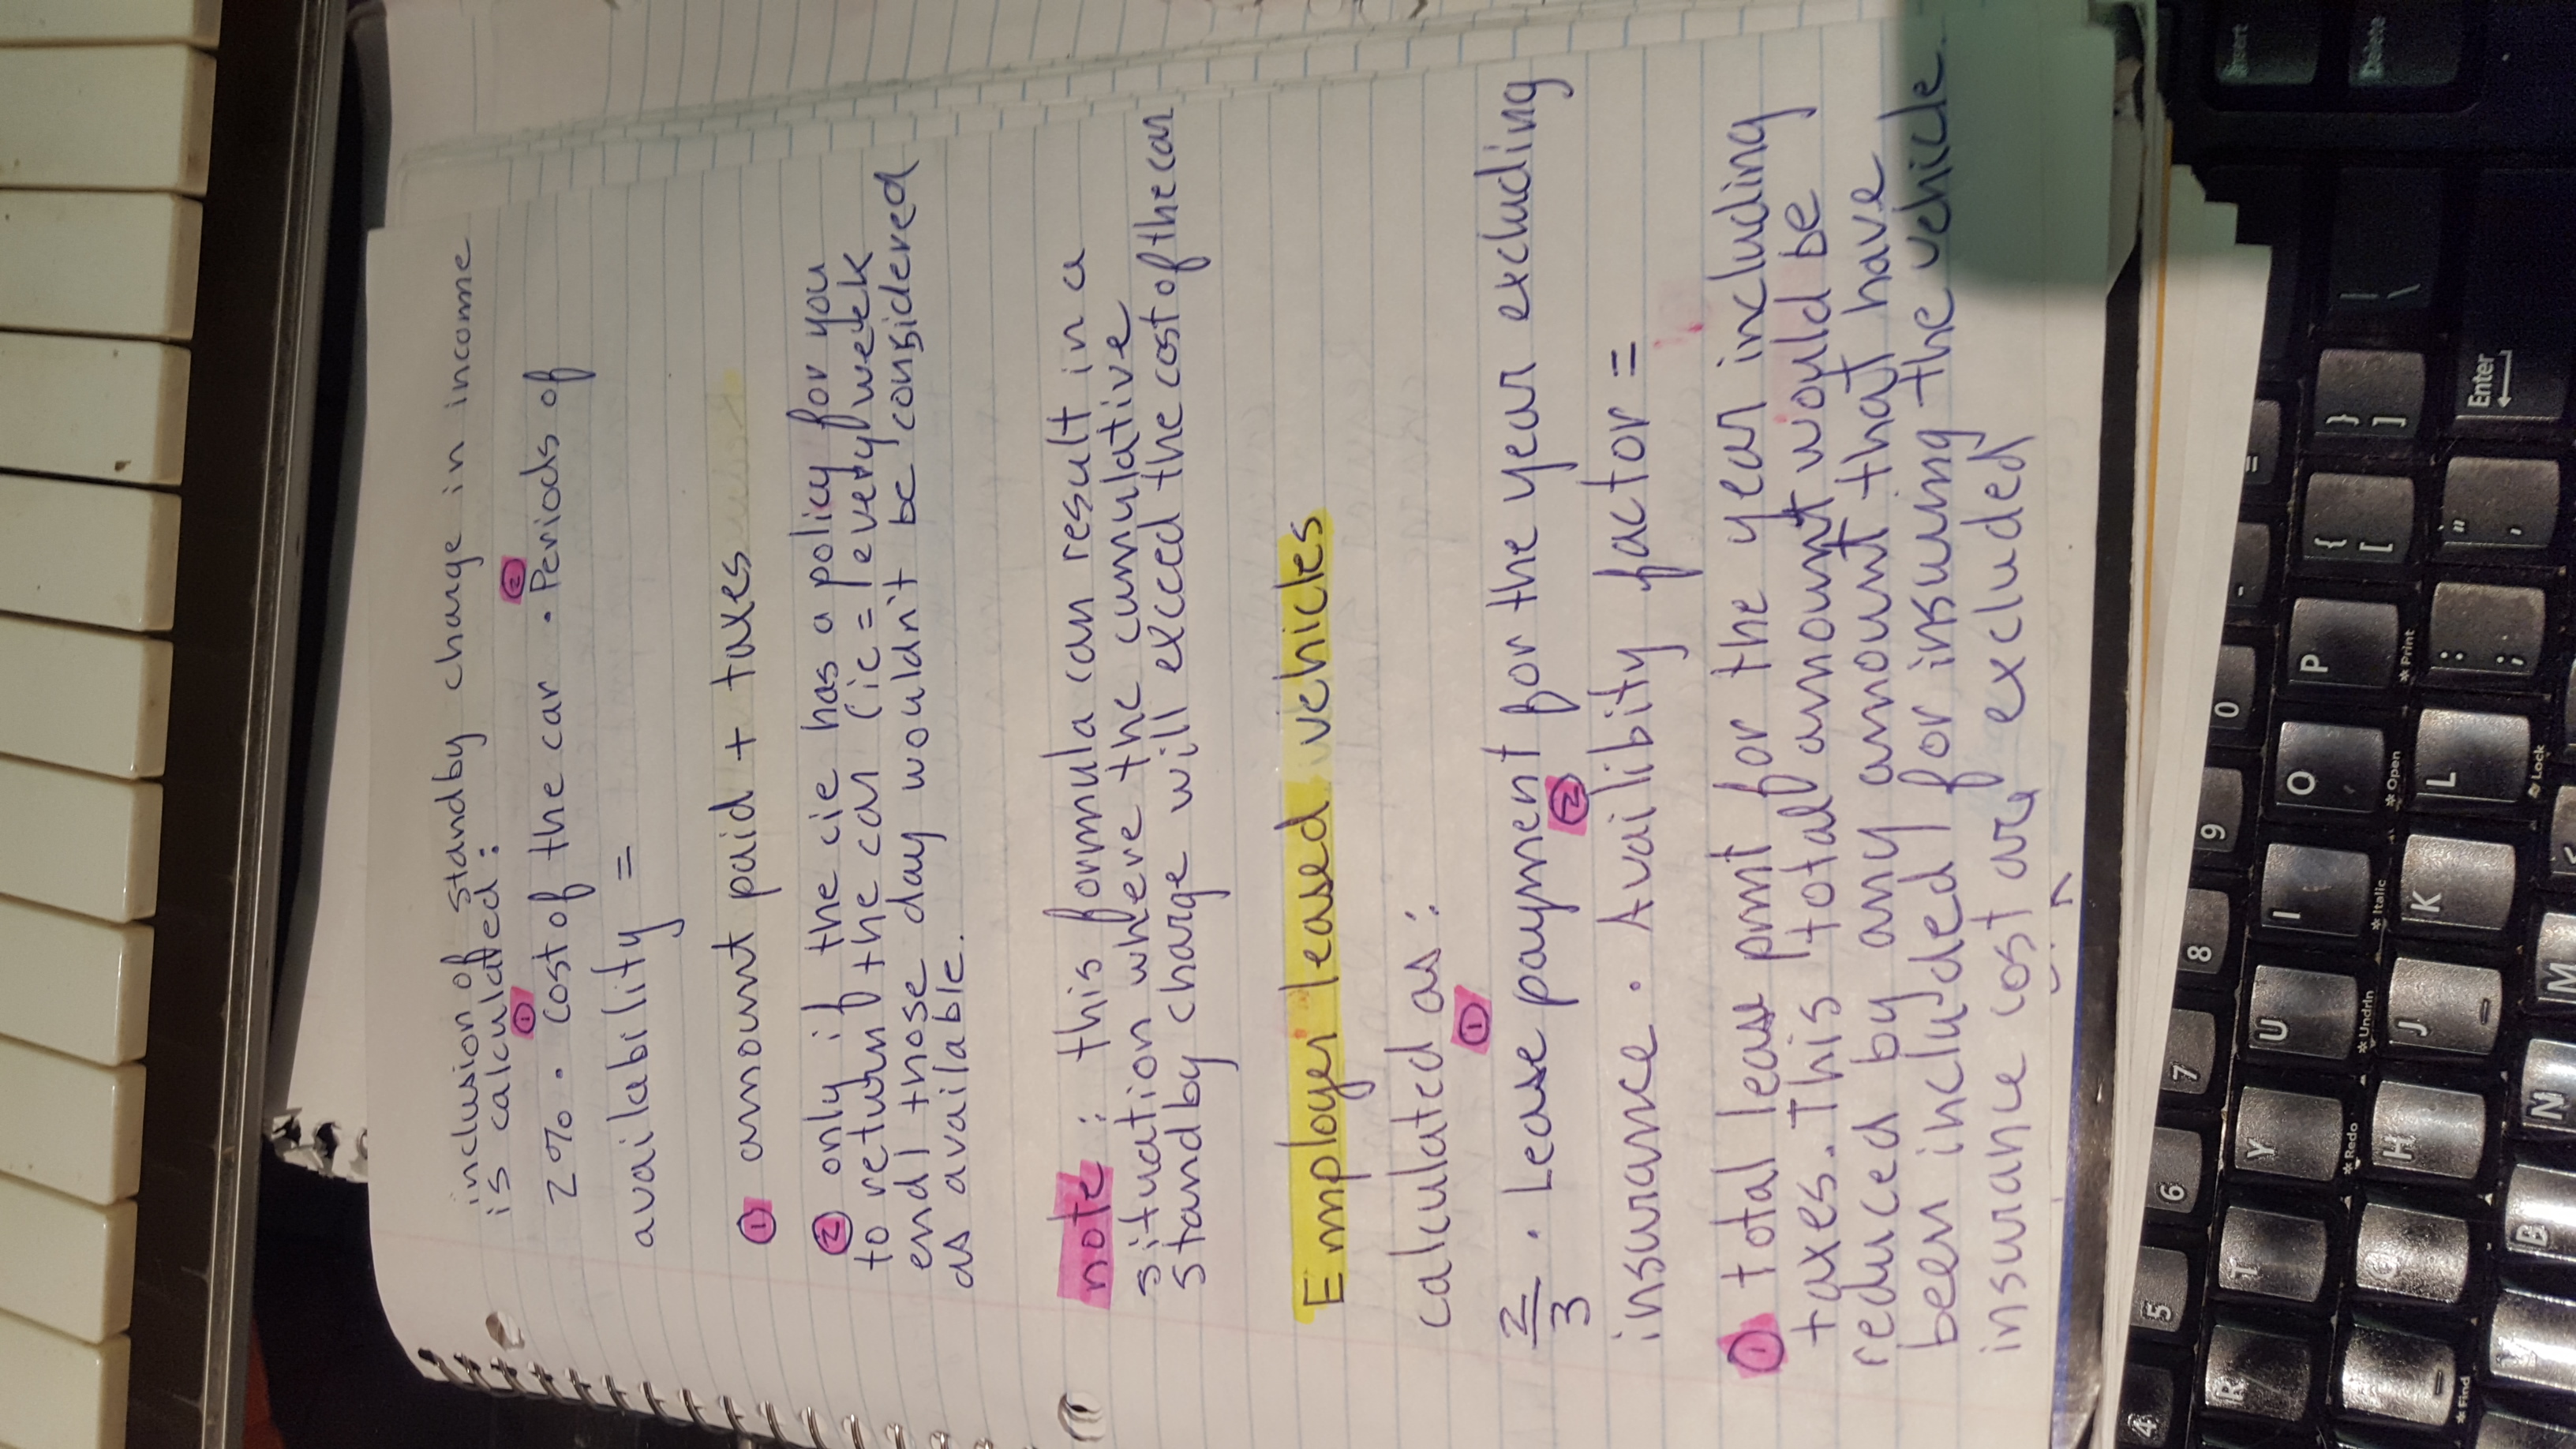 inclusion of standby charge in income
is calculated:
① ②
2% . cost of the car . Periods of
availability =
① amount paid + taxes
② only if the cie has a policy for you
to return the car (ie = every week
end) those day wouldn't be considered
as available.
note : this formula can result in a
situation where the cumulative
standby charge will exceed the cost of the car
Employer leased vehicles
calculated as:
①
2/3 . Lease payment for the year excluding
②
insurance . Availibity factor =
① total lease pmt for the year including
taxes. This total amount would be
reduced by any amount that have
been included for insuring the vehicle.
insurance cost are excluded
Insert
Delete
Enter
0
P
Print
9
O
Open
L
Lock
8
I
Italic
K
7
U
Undrln
J
M
6
Y
Redo
H
N
5
T
G
B
4
R
F
Find
V